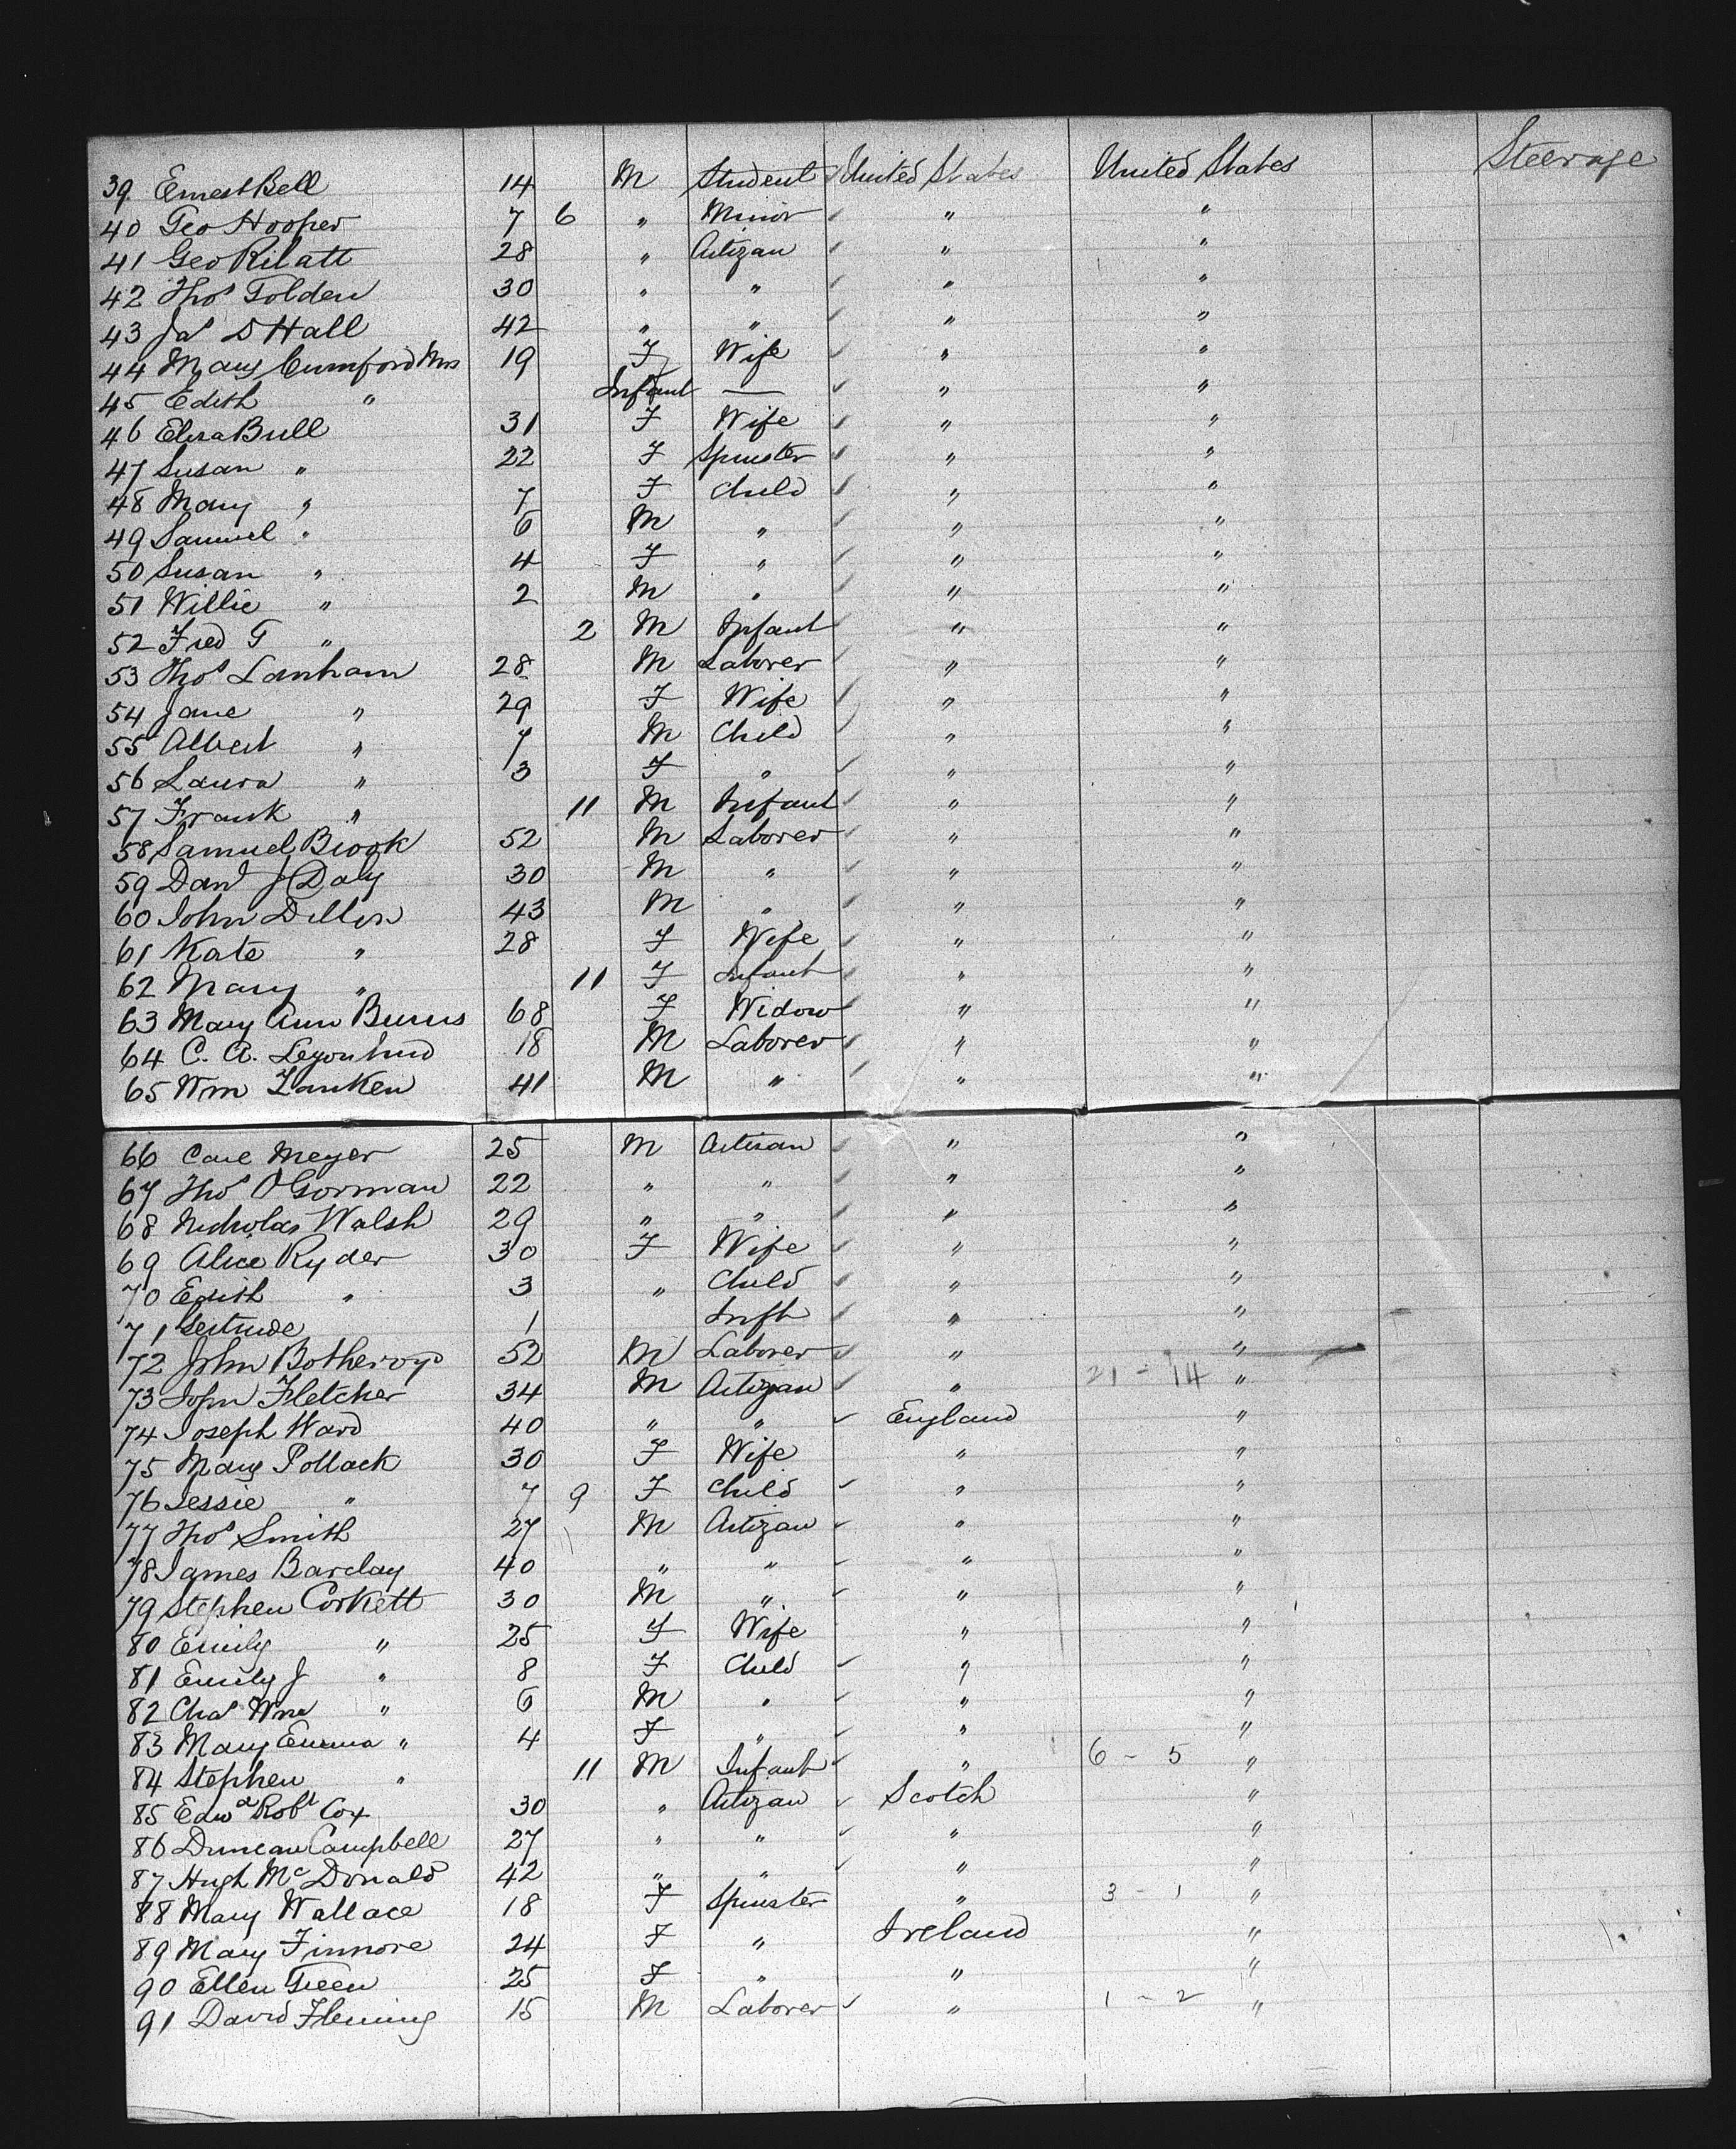 39. Ernest Bell 14 M Student United States United States Steerage
40 Geo Hooper 7 6 " Minor " "
41 Geo Rilatt 28 " Artizan " "
42 Thos Tolden 30 " " " "
43 Jas D Hall 42 " " " "
44 Mary Cumford Mrs 19 F Wife " "
45 Edith " Infant — " "
46 Eliza Bull 31 F Wife " "
47 Susan " 22 F Spinster " "
48 Mary " 7 F Child " "
49 Samuel " 6 M " " "
50 Susan " 4 F " " "
51 Willie " 2 M " " "
52 Fred G " 2 M Infant " "
53 Thos Lanham 28 M Laborer " "
54 Jane " 29 F Wife " "
55 Albert " 7 M Child " "
56 Laura " 3 F " " "
57 Frank " 11 M Infant " "
58 Samuel Brook 52 M Laborer " "
59 Danl J Daly 30 M " " "
60 John Dillon 43 M " " "
61 Kate " 28 F Wife " "
62 Mary " 11 F Infant " "
63 Mary Ann Burns 68 F Widow " "
64 C. A. 18 M Laborer " "
65 Wm Zanken 41 M " " "
66 Carl Meyer 25 M Artisan " "
67 Thos O'Gorman 22 " " " "
68 Nicholas Walsh 29 " " " "
69 Alice Ryder 30 F Wife " "
70 Edith " 3 " Child " "
71 Gertrude 1 Inft " "
72 John Botheroyd 52 M Laborer " "
73 John Fletcher 34 M Artizan " 21 - 14 "
74 Joseph Ward 40 " " England "
75 Mary Pollack 30 F Wife " "
76 Jessie " 7 9 F Child " "
77 Thos Smith 27 M Artizan " "
78 James Barclay 40 " " " "
79 Stephen Corkett 30 M " " "
80 Emily " 25 F Wife " "
81 Emily J " 8 F Child " "
82 Chas Wm " 6 M " " "
83 Mary Emma " 4 F " " "
84 Stephen " 11 M Infant " 6 - 5 "
85 Edwd Robt Cox 30 " Artizan Scotch "
86 Duncan Campbell 27 " " " "
87 Hugh McDonald 42 " " " "
88 Mary Wallace 18 F Spinster " 3 - 1 "
89 Mary Finnore 24 F " Ireland "
90 Ellen Green 25 F " " "
91 David Fleming 15 M Laborer " 1 - 2 "